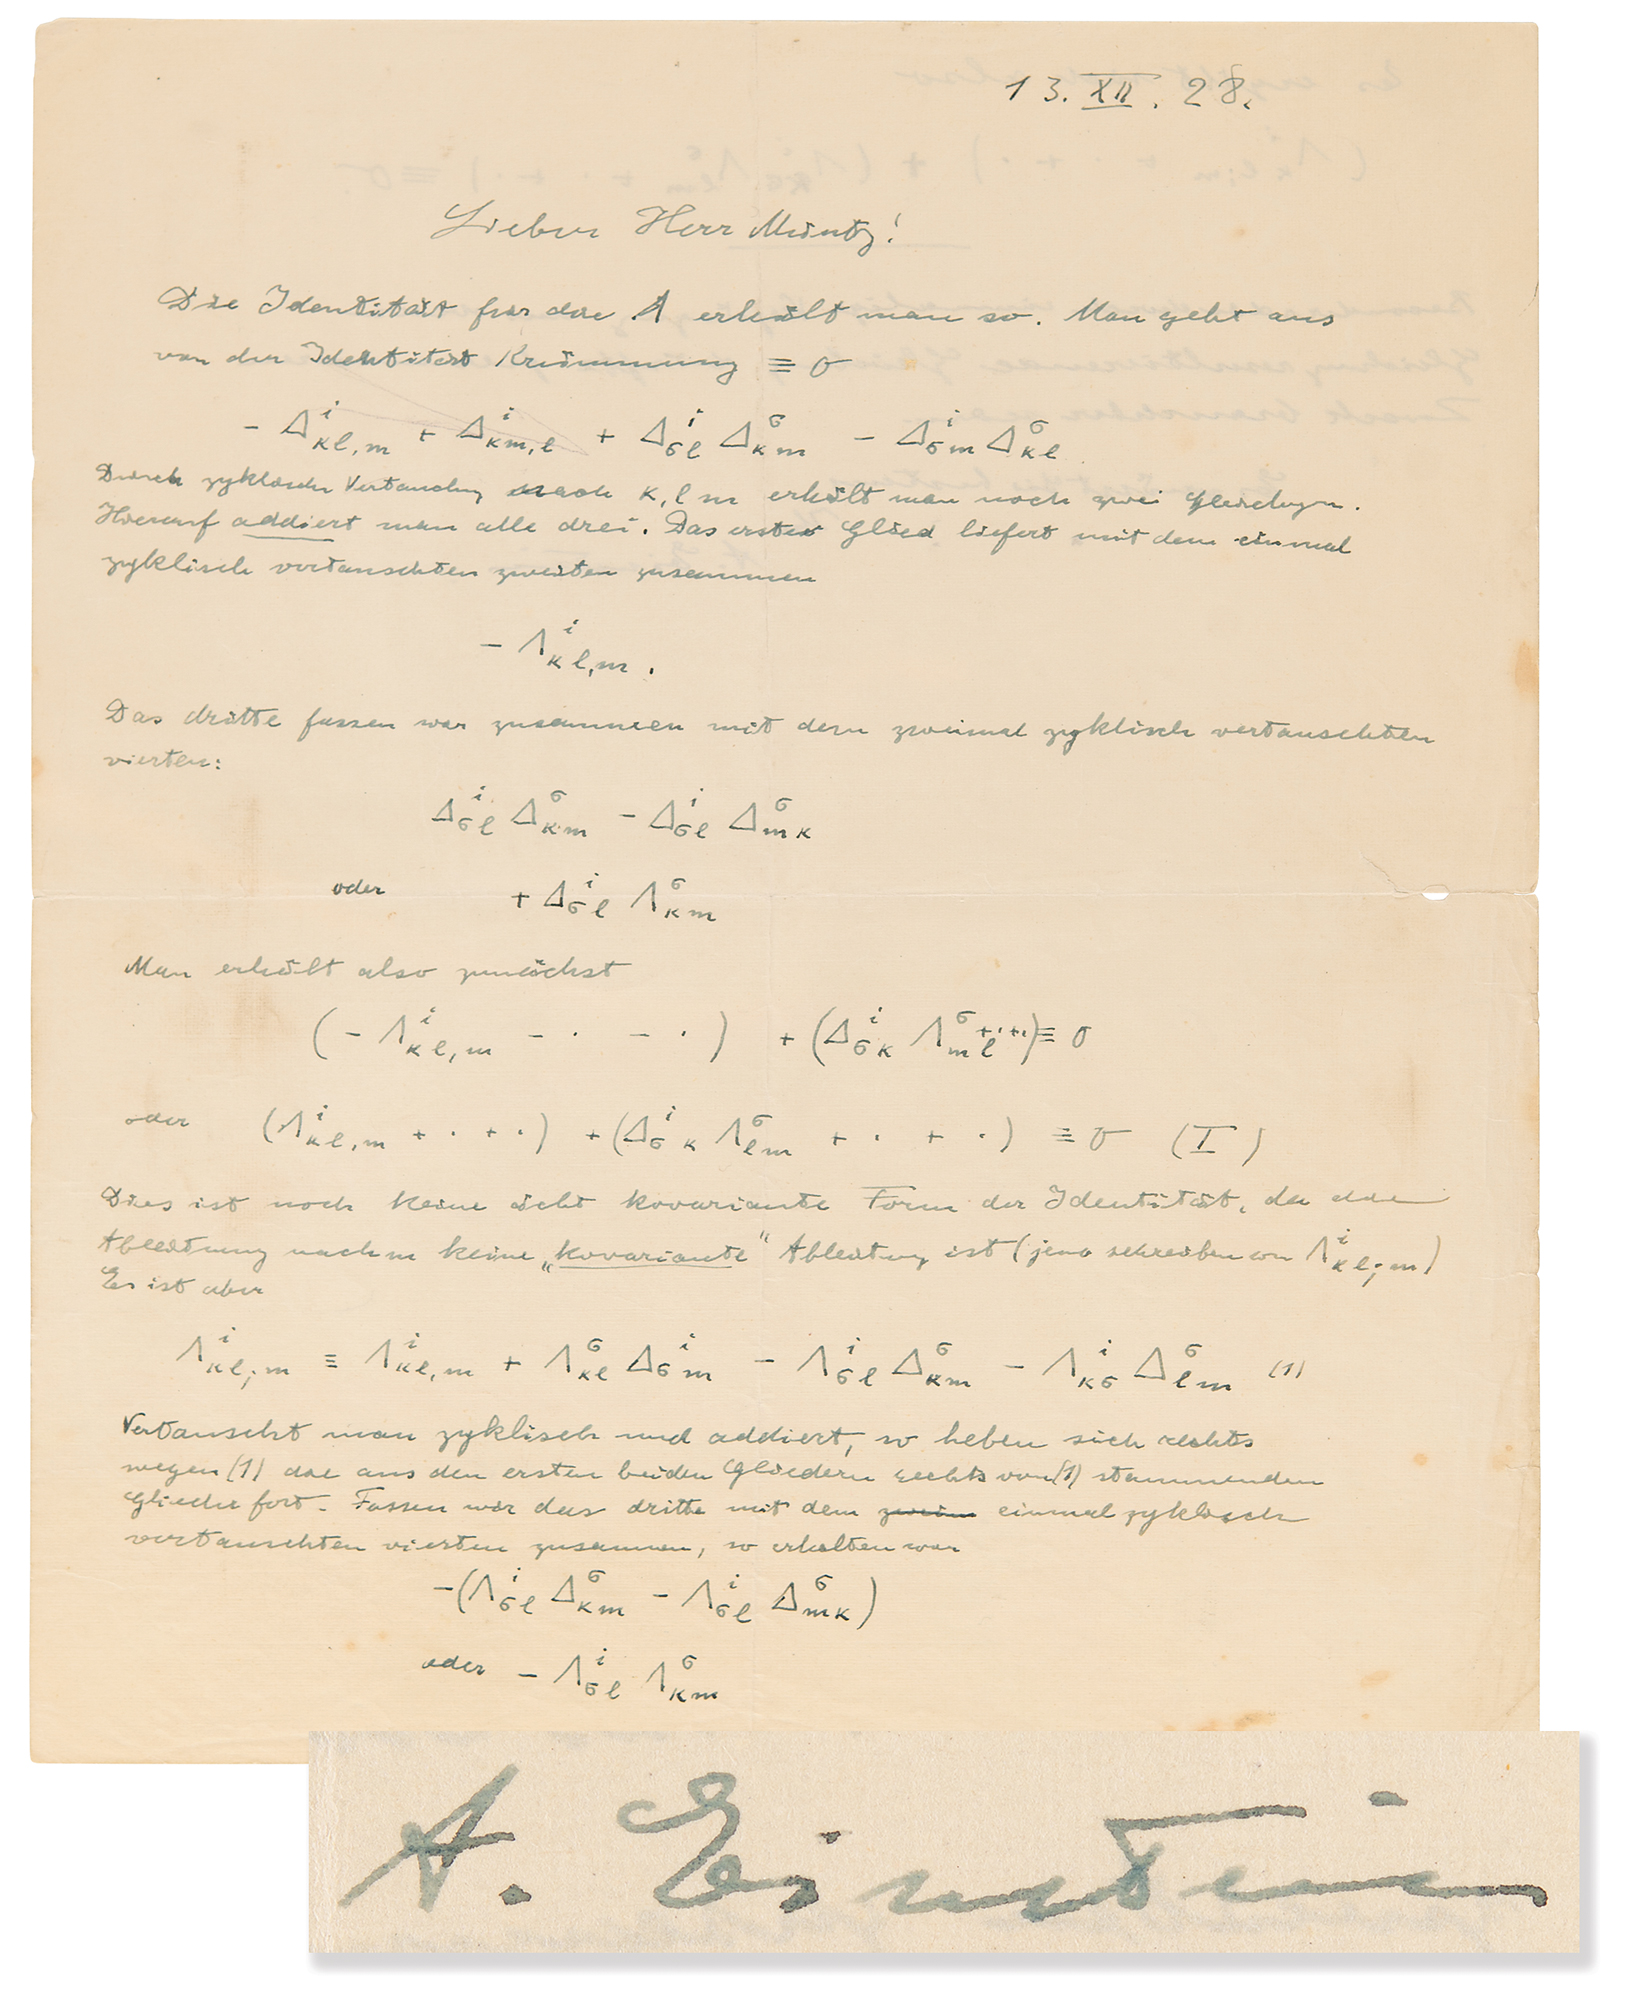 13. XII. 28.
Lieber Herr Müntz!
Die Identität für die Λ erhält man so. Man geht aus
von der Identität Krümmung ≡ 0
- Δ^i_{κl,m} + Δ^i_{κm,l} + Δ^i_{σl} Δ^σ_{κm} - Δ^i_{σm} Δ^σ_{κl}
Durch zyklische Vertauschung nach κ, l m erhält man noch zwei Gleichungen.
Hierauf addiert man alle drei. Das erste Glied liefert mit dem einmal
zyklisch vertauschten zweiten zusammen
- Λ^i_{κl,m}.
Das dritte fassen wir zusammen mit dem zweimal zyklisch vertauschten
vierten:
Δ^i_{σl} Δ^σ_{κm} - Δ^i_{σl} Δ^σ_{mκ}
oder + Δ^i_{σl} Λ^σ_{κm}
Man erhält also zunächst
(- Λ^i_{κl,m} - · - ·) + (Δ^i_{σκ} Λ^σ_{ml} + · + ·) ≡ 0
oder (Λ^i_{κl,m} + · + ·) + (Δ^i_{σκ} Λ^σ_{lm} + · + ·) ≡ 0 (I)
Dies ist noch keine echt kovariante Form der Identität, da die
Ableitung nach m keine „kovariante“ Ableitung ist (jene schreiben wir Λ^i_{κl;m})
Es ist aber
Λ^i_{κl;m} ≡ Λ^i_{κl,m} + Λ^σ_{κl} Δ^i_{σm} - Λ^i_{σl} Δ^σ_{κm} - Λ^i_{κσ} Δ^σ_{lm} (1)
Vertauscht man zyklisch und addiert, so heben sich rechts
wegen (1) die aus den ersten beiden Gliedern rechts von (1) stammenden
Glieder fort. Fassen wir das dritte mit dem einmal zyklisch
vertauschten vierten zusammen, so erhalten wir
-(Λ^i_{σl} Δ^σ_{κm} - Λ^i_{σl} Δ^σ_{mκ})
oder - Λ^i_{σl} Λ^σ_{κm}
A. Einstein